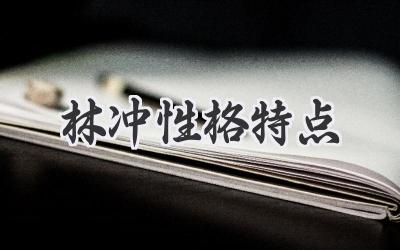 林冲性格特点